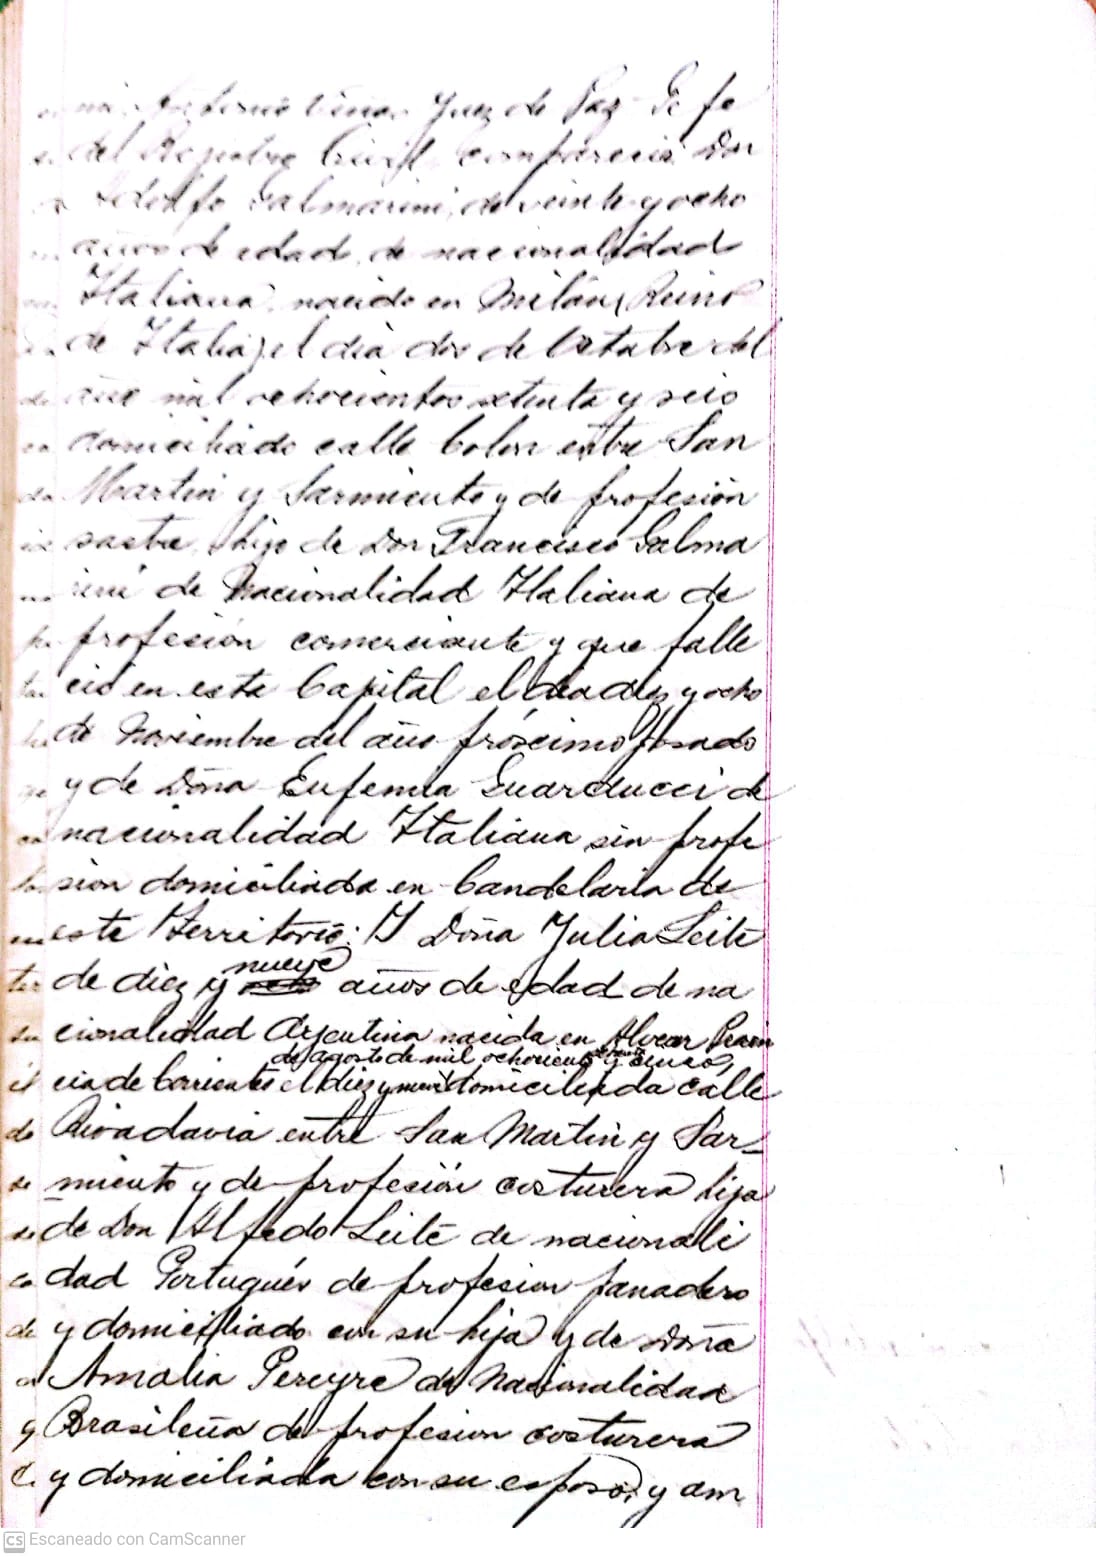 mi Antonio Viñas Juez de Paz Gefe
del Registro Civil comparecio Don
Adolfo Salmarini, de veinte y ocho
años de edad, de nacionalidad
Italiana nacido en Milán (Reino
de Italia) el dia dos de Octubre del
año mil ochocientos setenta y seis
domiciliado calle Colon entre San
Martin y Sarmiento y de profesión
sastre, hijo de Don Francisco Salma
rini de Nacionalidad Italiana de
profesión comerciante y que falle
ció en esta Capital el dia diez y ocho
de Noviembre del año próximo pasado
y de Doña Eufemia Guarducci de
nacionalidad Italiana sin profe
sion domiciliada en Candelaria de
este Territorio: Y Doña Julia Leite
nueve
de diez y años de edad de na
cionalidad Argentina nacida en Alvear Provin
de agosto de mil ochocientos ochenta y cinco,
cia de Corrientes el diez y nueve domiciliada calle
Rivadavia entre San Martin y Sar_
miento y de profesión costurera hija
de Don Alfredo Leite de nacionali
dad Portugués de profesion panadero
y domiciliado con su hija y de Doña
Amalia Pereyra de Nacionalidad
Brasileña de profesion costurera
y domiciliada con su esposo, y am
CS Escaneado con CamScanner